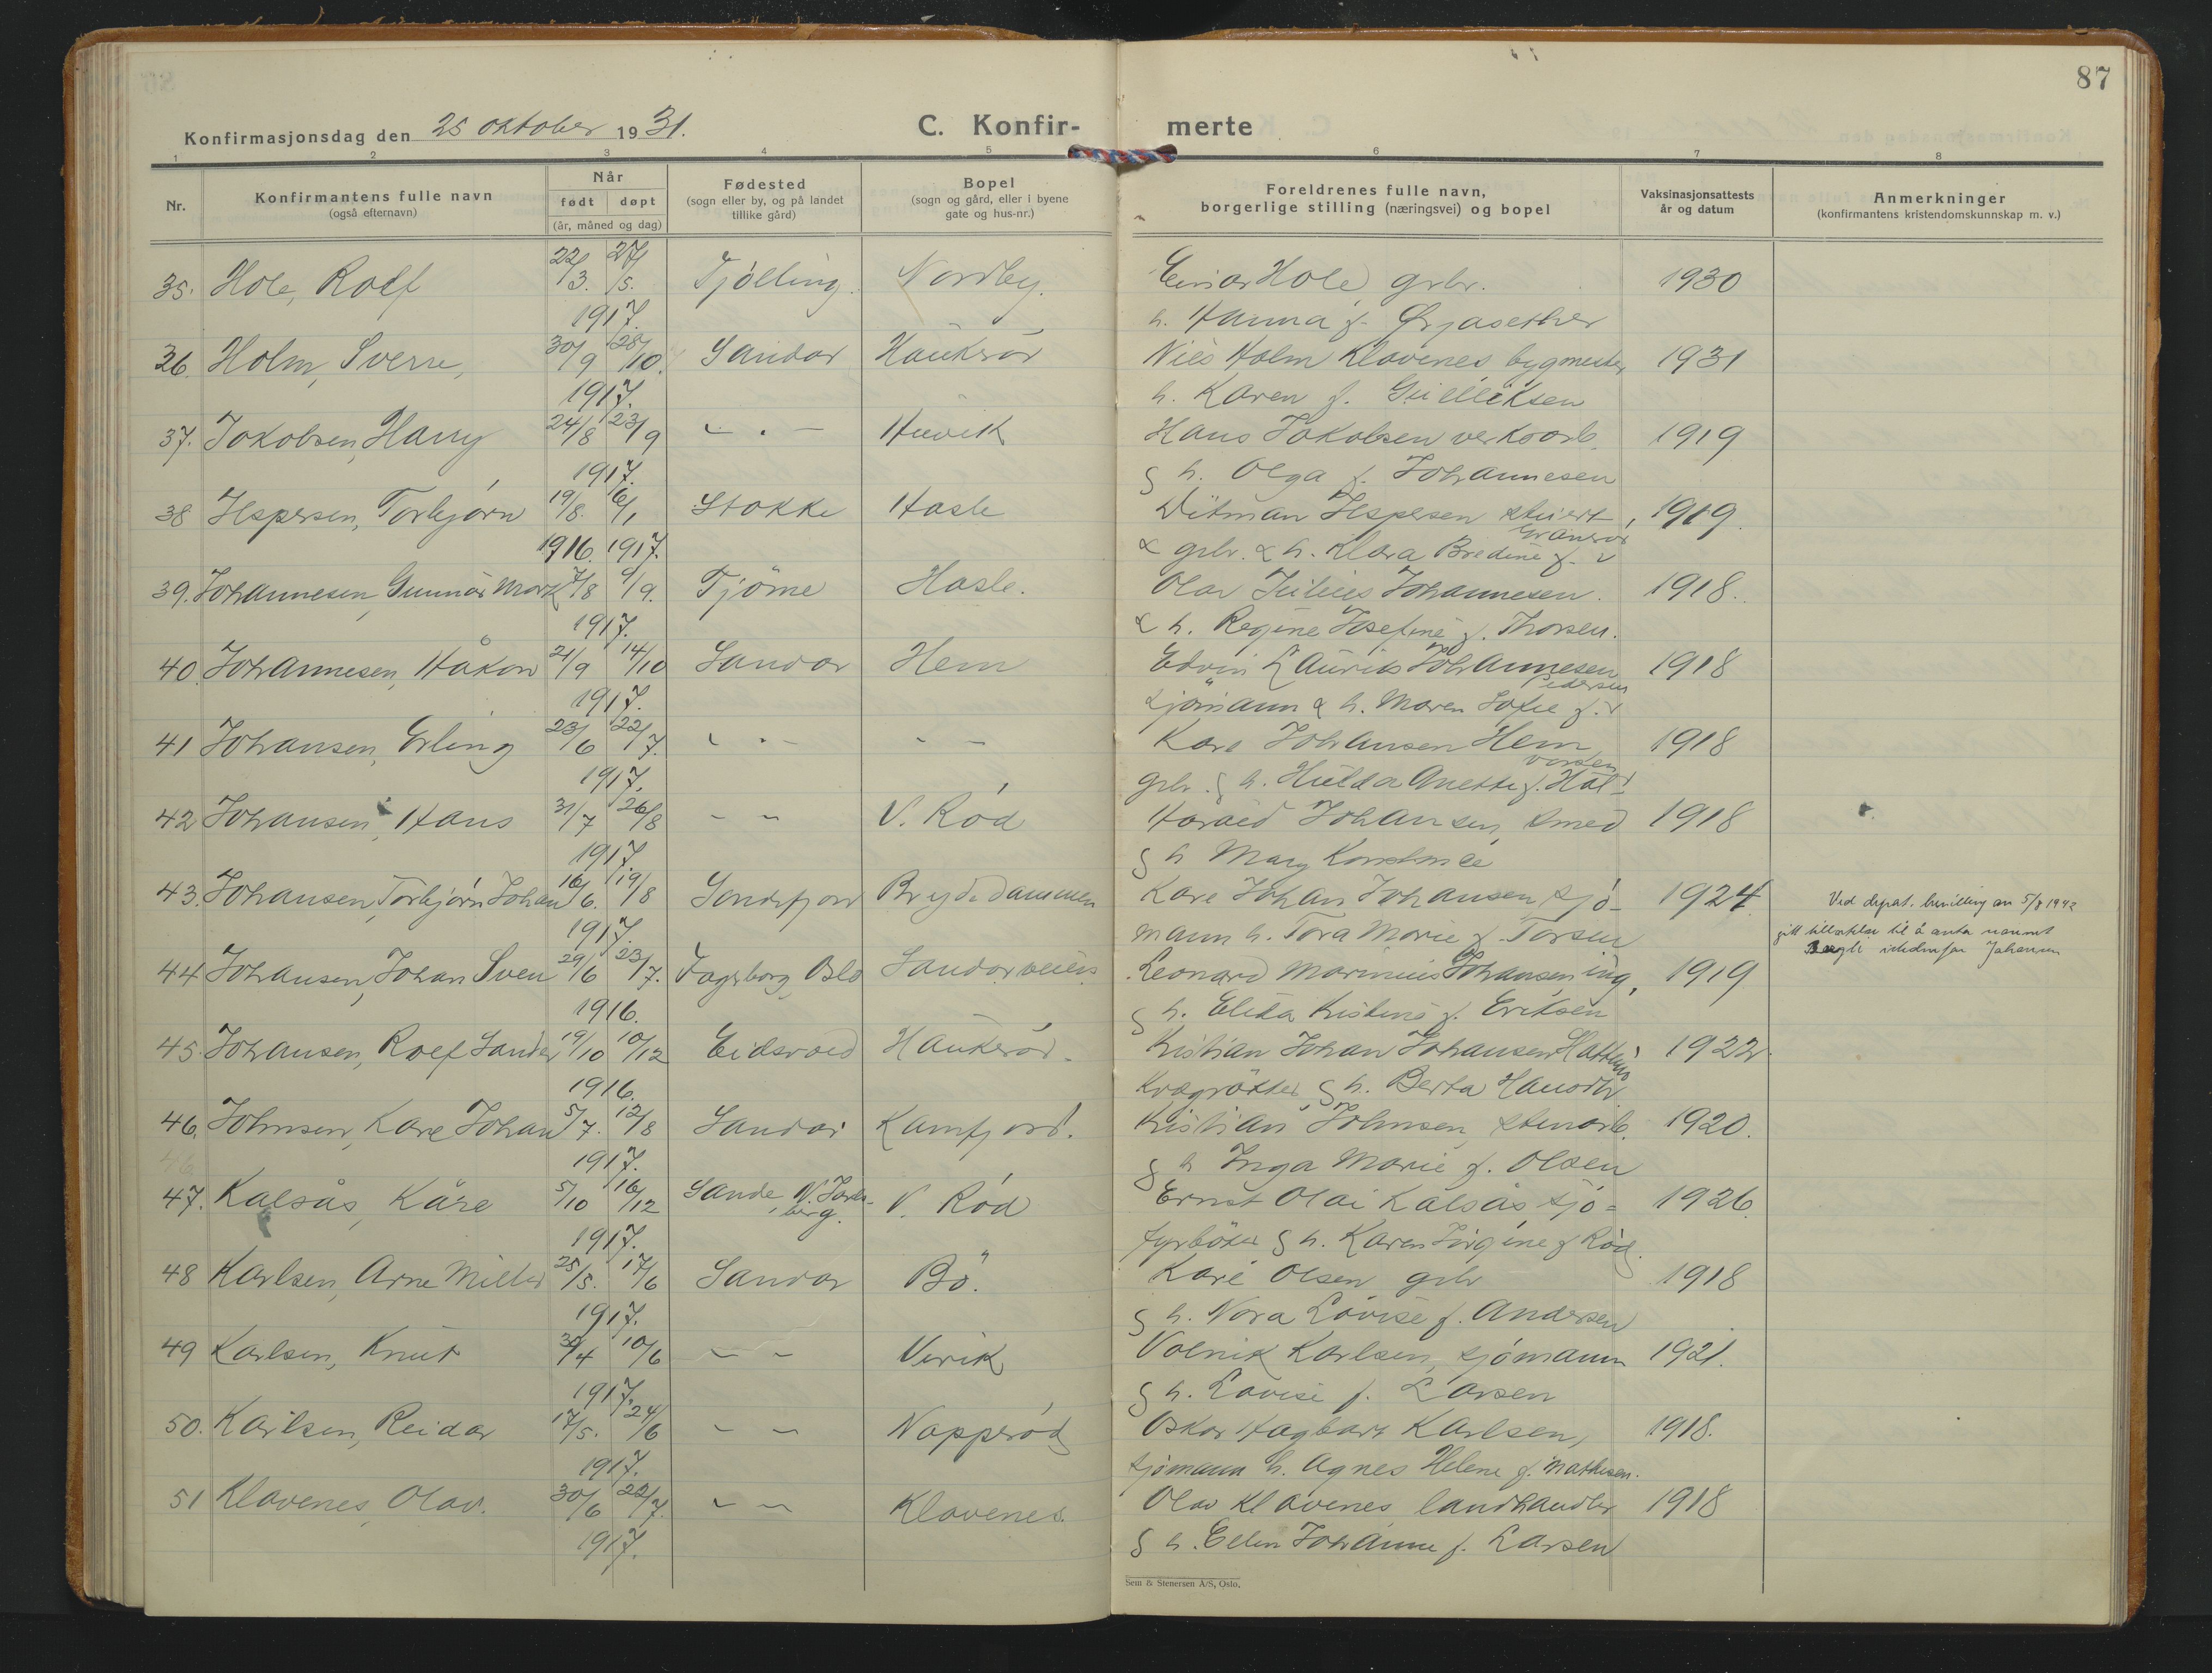 87
Konfirmasjonsdag den 25 oktober 1931.
C. Konfir-merte
1 2 3 4 5 6 7 8
Nr.
Konfirmantens fulle navn
(også efternavn)
Når
født døpt
(år, måned og dag)
Fødested
(sogn eller by, og på landet
tillike gård)
Bopel
(sogn og gård, eller i byene
gate og hus-nr.)
Foreldrenes fulle navn,
borgerlige stilling (næringsvei) og bopel
Vaksinasjonsattests
år og datum
Anmerkninger
(konfirmantens kristendomskunnskap m. v.)
35. Hole, Rolf 22/3. 27/5. Tjølling. Nordby. Einar Hole grbr. 1930
1917. h. Hanna f.
36. Holm, Sverre, 30/9 28/10. Sandar Haukerød Nils Holm Klavenes bygmester 1931
1917. h. Karen f. Gulliksen
37. Jakobsen, Harry 24/8 23/9 - . - Huvik Hans Jakobsen verksarb. 1919
1917. & h. Olga f. Johannesen
38 Jespersen, Torbjørn 19/8. 6/1 Stokke Hasle Ditman Jespersen stuert, 1919.
1916. 1917. & grbr. & h. Klara Bredine f.
39. Johannesen, Gunnar Mark 7/8 9/9. Tjöme Hasle. Olav Julius Johannesen. 1918.
1917. & h. Regine Josefine f. Thorsen.
40. Johannesen, Håkon 21/9 14/10 Sandar Hem Edvin Laurits Johannesen 1918
1917. sjömann & h. Maren Sofie f. Pedersen
41 Johansen, Erling 23/6 22/7. - . - - - Karl Johansen Hem, 1918
1917. grbr. & h. Hulda Anette f. Hal-vorsen
42 Johansen, Hans 31/7 26/8 - - V. Rød Harald Johansen, smed 1918
1917. & h Mary Konstance
43. Johansen, Torbjørn Johan 16/6. 19/8 Sandefjord Brydedammen Karl Johan Johansen sjø- 1924.
1917. mann h. Tora Marie f. Torsen
Ved depat. bevilling av 5/8 1942
gitt tillatelse til å anta navnet
istedenfor Johansen
44 Johansen, Johan Sven 29/6 23/7. Fagerborg, Oslo Sandarveien Leonard Marinius Johansen ing, 1919
1916. & h. Elida Kristine f. Eriksen
45. Johansen, Rolf Sander 19/10 10/12 Eidsvold Haukerød. Kristian Johan Johansen 1922.
1916. & h. Berta
46. Johnsen, Karl Johan 5/7. 12/8 Sandar Kamfjord. Kristian Johnsen, stenarb. 1920.
1917. & h Inga Marie f. Olsen
47. Kalsås, Kåre 5/10 16/12 Sande, N. Jarls-berg. V. Rød Ernst Olai Kalsås sjö- 1926.
1917. fyrböter & h. Karen Jörgine f Rød.
48 Karlsen, Arne Miller 25/5. 17/6 Sandar Bö. Karl Olsen grbr 1918
1917. & h. Nora Lovise f. Andersen
49 Karlsen, Knut 30/4 10/6 - - Virik Volrik Karlsen, sjömann 1921.
1917. & h. Lovise f. Larsen
50. Karlsen, Reidar 17/5. 24/6 - - Napperød Oskar Hagbart Karlsen, 1918.
1917. sjömann h. Agnes Helene f. Mathisen.
51 Klavenes, Olav. 30/6 22/7. - - Klavenes. Olav Klavenes landhandler 1918
1917. & h. Ellen Johanne f. Larsen
Sem & Stenersen A/S, Oslo.